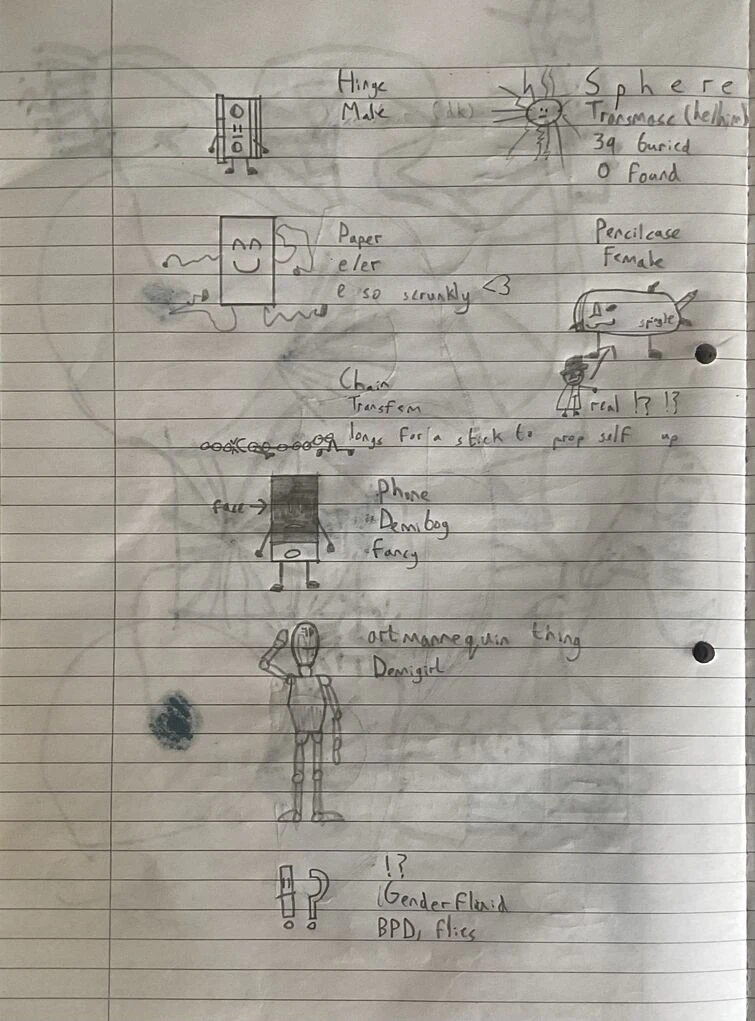 Hinge
Male (idk)
Sphere
Transmasc (he/him)
39 buried
0 found
Paper
e/er
e so scrunkly <3
Pencilcase
Female
spingle
real !? !?
Chain
Transfem
longs for a stick to prop self up
face →
Phone
Demiboy
Fancy
art mannequin thing
Demigirl
!?
Genderfluid
BPD, flies